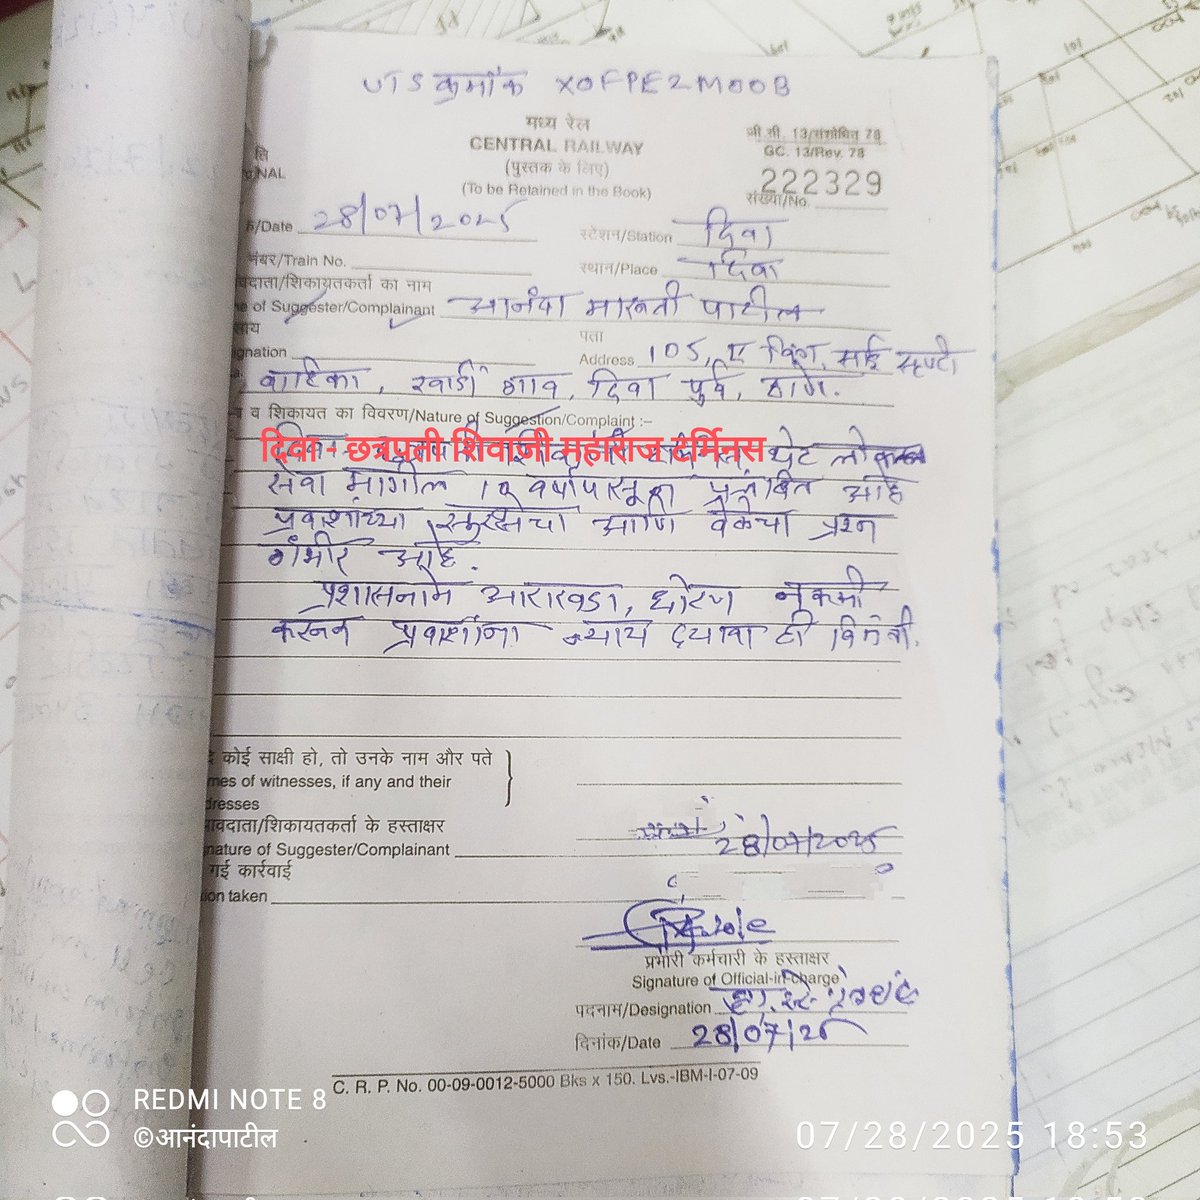 UTS क्रमांक X0FPE2M00B
मध्य रेल
CENTRAL RAILWAY
(पुस्तक के लिए)
(To be Retained in the Book)
जी.सी. 13/संशोधित 78
GC. 13/Rev. 78
222329
संख्या/No.
ति
NAL
/Date 28/07/2025
स्टेशन/Station दिवा
नंबर/Train No.
स्थान/Place दिवा
वदाता/शिकायतकर्ता का नाम
e of Suggester/Complainant आनंदा मारुती पाटील
साय
gnation
पता
Address 105, ए विंग, साई सृष्टी
वाटिका, गाव, दिवा पुर्व, ठाणे.
व शिकायत का विवरण/Nature of Suggestion/Complaint :–
दिवा - छत्रपती शिवाजी महाराज टर्मिनस
थेट लोकल
सेवा मागील वर्षापासून प्रलंबित आहे
प्रवाशांच्या सुरक्षेचा आणि वेळेचा प्रश्न
गंभीर आहे.
प्रशासनाने आराखडा, धोरण नक्की
करून प्रवाशांना न्याय द्यावा ही विनंती.
कोई साक्षी हो, तो उनके नाम और पते
mes of witnesses, if any and their
dresses
ावदाता/शिकायतकर्ता के हस्ताक्षर
nature of Suggester/Complainant
28/07/2025
गई कार्रवाई
ion taken
प्रभारी कर्मचारी के हस्ताक्षर
Signature of Official-in-charge
पदनाम/Designation
दिनांक/Date 28/07/25
C. R. P. No. 00-09-0012-5000 Bks x 150. Lvs.-IBM-I-07-09
REDMI NOTE 8
©आनंदापाटील
07/28/2025 18:53